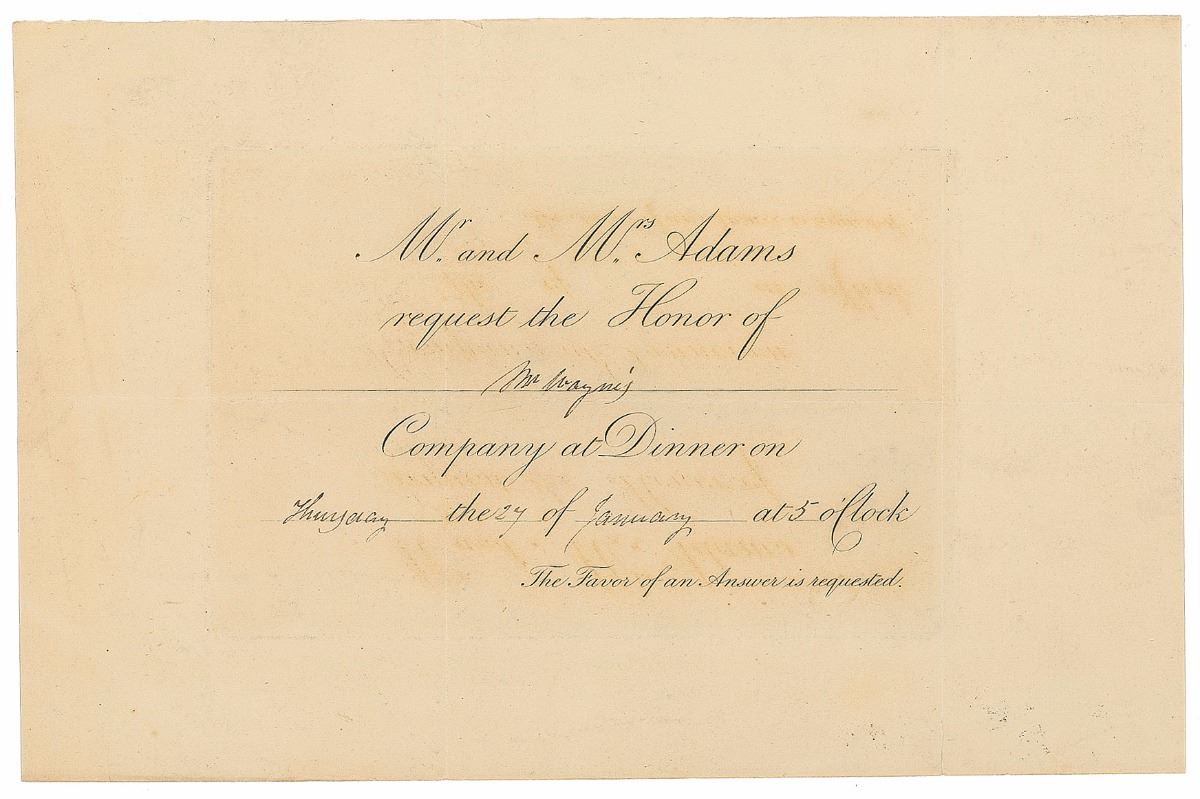 Mr. and Mrs. Adams
request the Honor of
Mr Wayne's
Company at Dinner on
Thursday the 27 of January at 5 o'Clock
The Favor of an Answer is requested.